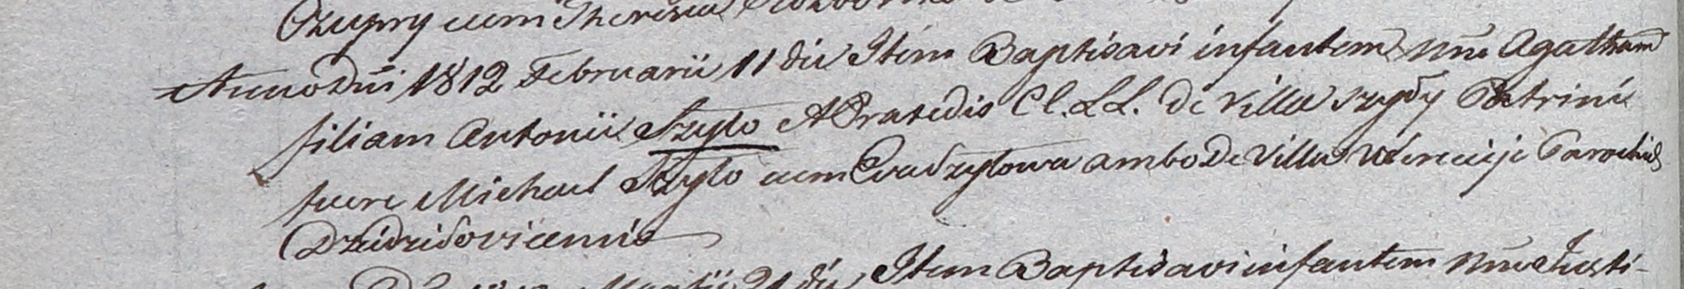 Czupry cum Theresia
Anno Dni 1812 Februarii 11 die Item Baptisavi infantem Nne Agatham
filiam Antonii Szyło A Pratedis C.l. L.L. de Villa Szyły Patrini
fuere Michael Szyło cum Eva Szyłowa ambo De Villa Parochiæ
Dzidziłovicensis
Martii 21 die Item Baptisavi infantem Nne Justi-